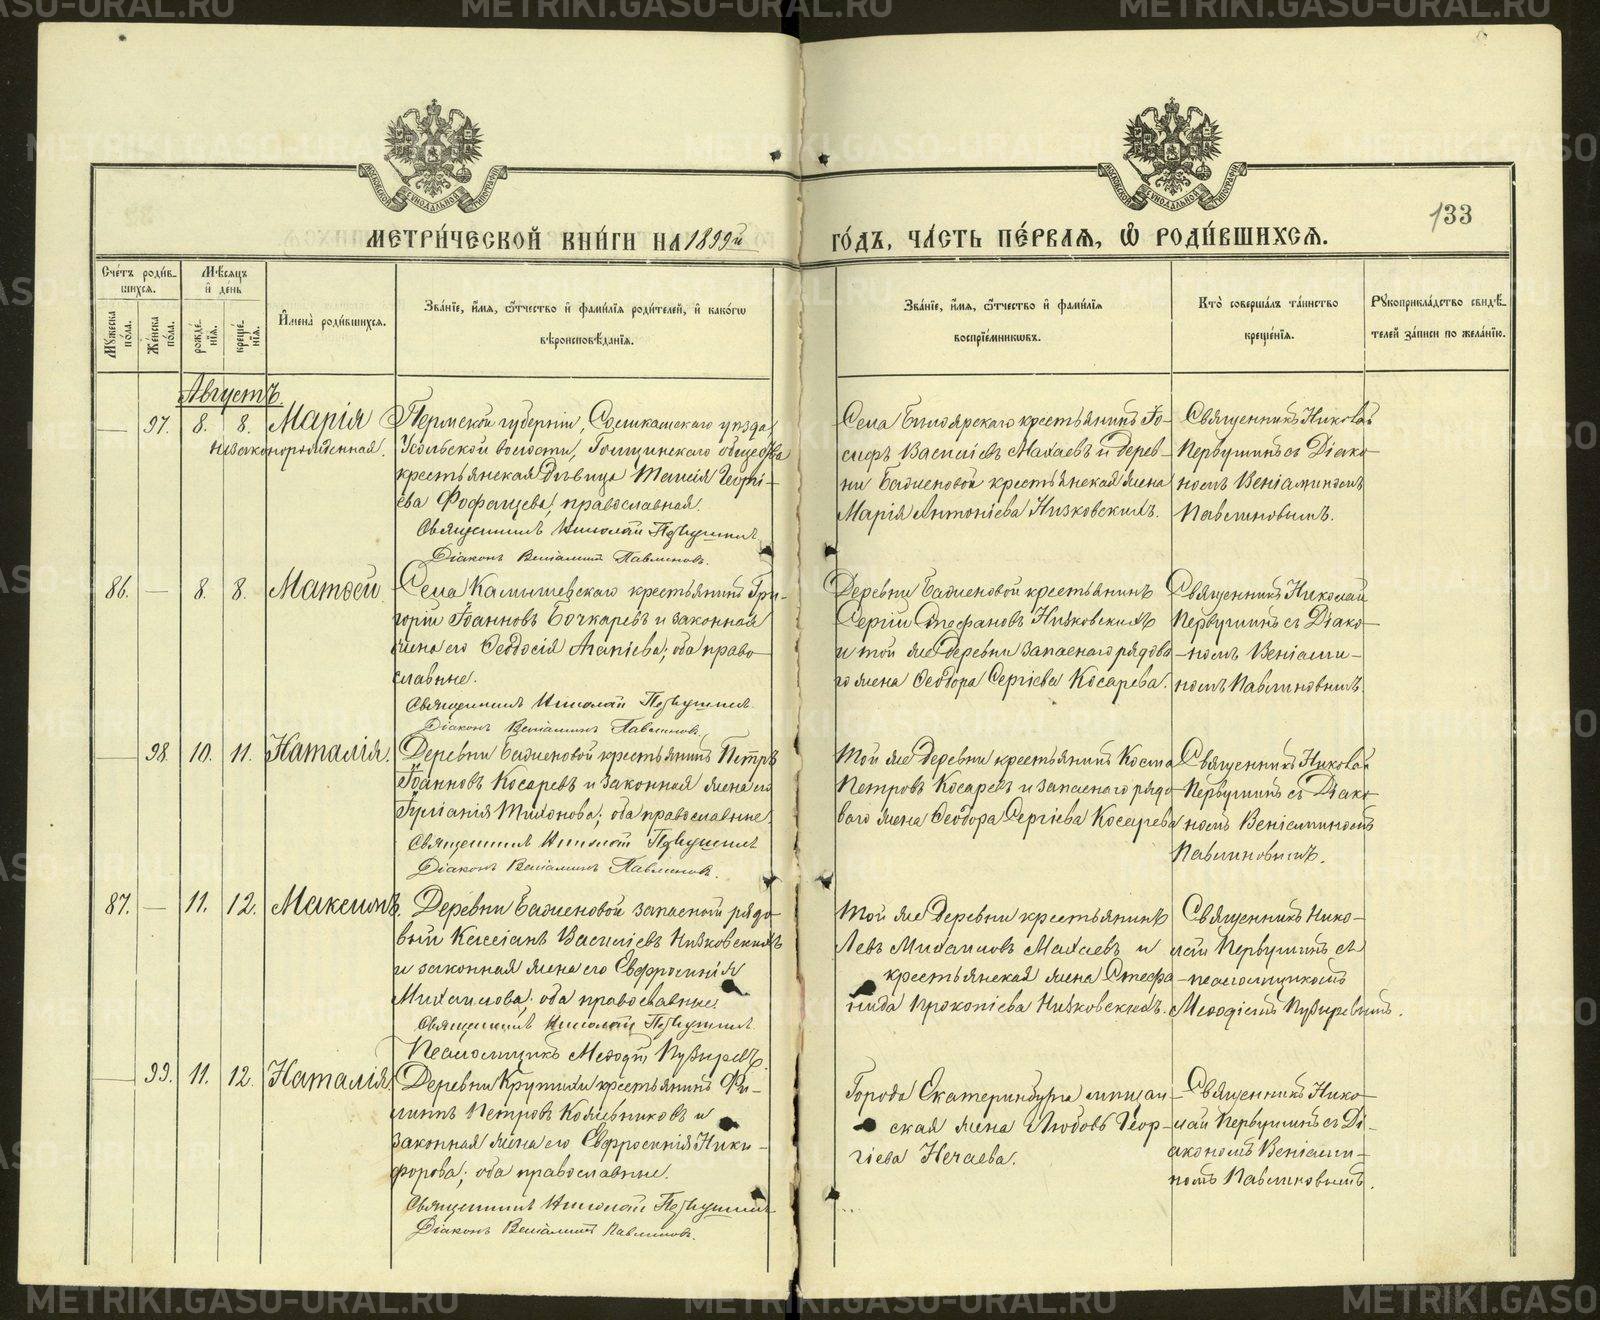 METRIKI.GASO-URAL.RU
133
МЕТРИ́ЧЕСКОЙ КНИ́ГИ НА 1899й ГО́ДЪ, ЧА́СТЬ ПЕ́РВАЯ, Ѡ РОДИ́ВШИХСЯ.
Сче́тъ роди́вшихся.
Му́жеска по́ла.
Же́нска по́ла.
Мѣ́сяцъ и де́нь
рожде́нїя.
креще́нїя.
И҆мена̀ роди́вшихся.
Зва́нїе, и҆́мя, ѻ҆́тчество и҆ фами́лїя роди́телей, и҆ како́гѡ вѣроисповѣ́данїя.
Зва́нїе, и҆́мя, ѻ҆́тчество и҆ фами́лїя воспрїе́мникѡвъ.
Кто̀ соверша́лъ та́инство креще́нїя.
Рꙋкоприкла́дство свидѣ́телей за́писи по жела́нїю.
Августъ.
— 97. 8. 8. Марія
незаконорожденная.
Пермской губерніи, Соликамскаго уѣзда,
Усольской волости, общества
крестьянская дѣвица Таисія Георгі-
ева православная.
Священникъ Николай Первушинъ
Діаконъ Веніаминъ Павлиновъ.
Села Билоярскаго крестьянинъ Іо-
сифъ Василіевъ Махаевъ и дерев-
ни Баженовой крестьянская жена
Марія Антоніева Низковскихъ.
Священникъ Николай
Первушинъ съ Діако-
номъ Веніаминомъ
Павлиновымъ.
86. — 8. 8. Матѳей
Села Камышевскаго крестьянинъ Гри-
горій Іоанновъ Бочкаревъ и законная
жена его Ѳеодосія Агапіева; оба право-
славные.
Священникъ Николай Первушинъ
Діаконъ Веніаминъ Павлиновъ.
Деревни Баженовой крестьянинъ
Сергій Стефановъ Низковскихъ
и той же деревни запаснаго рядова-
го жена Ѳеодора Сергіева Косарева.
Священникъ Николай
Первушинъ съ Діако-
номъ Веніами-
номъ Павлиновымъ.
— 98. 10. 11. Наталія.
Деревни Баженовой крестьянинъ Петръ
Іоанновъ Косаревъ и законная жена его
Іуліанія Тихонова; оба православные.
Священникъ Николай Первушинъ
Діаконъ Веніаминъ Павлиновъ.
Той же деревни крестьянинъ Косма
Петровъ Косаревъ и запаснаго рядо-
ваго жена Ѳеодора Сергіева Косарева
Священникъ Николай
Первушинъ съ Діако-
номъ Веніаминомъ
Павлиновымъ.
87. — 11. 12. Максимъ.
Деревни Баженовой запасной рядо-
вый Кассіанъ Василіевъ Низковскихъ
и законная жена его Евфросинія
Михаилова; оба православные.
Священникъ Николай Первушинъ
Псаломщикъ Меѳодій Пузыревъ.
Той же деревни крестьянинъ
Левъ Михаиловъ Махаевъ и
крестьянская жена Стефа-
нида Прокопіева Низковскихъ.
Священникъ Нико-
лай Первушинъ съ
псаломщикомъ
Меѳодіемъ Пузыревымъ.
— 99. 11. 12. Наталія
Деревни Крутихи крестьянинъ Фи-
липпъ Петровъ Кожевниковъ и
законная жена его Евфросинія Ники-
форова; оба православные.
Священникъ Николай Первушинъ
Діаконъ Веніаминъ Павлиновъ.
Города Екатеринбурга мѣщан-
ская жена Любовь Геор-
гіева Нечаева.
Священникъ Нико-
лай Первушинъ съ Ді-
акономъ Веніами-
номъ Павлиновымъ.